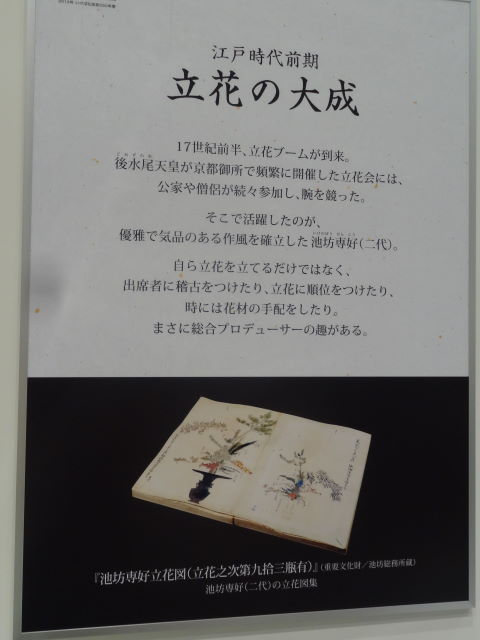 江戸時代前期
立花の大成
17世紀前半、立花ブームが到来。
後水尾天皇が京都御所で頻繁に開催した立花会には、
公家や僧侶が続々参加し、腕を競った。
そこで活躍したのが、
優雅で気品のある作風を確立した池坊専好(二代)。
自ら立花を立てるだけではなく、
出席者に稽古をつけたり、立花に順位をつけたり、
時には花材の手配をしたり。
まさに総合プロデューサーの趣がある。
『池坊専好立花図(立花之次第九拾三瓶有)』(重要文化財/池坊総務所蔵)
池坊専好(二代)の立花図集